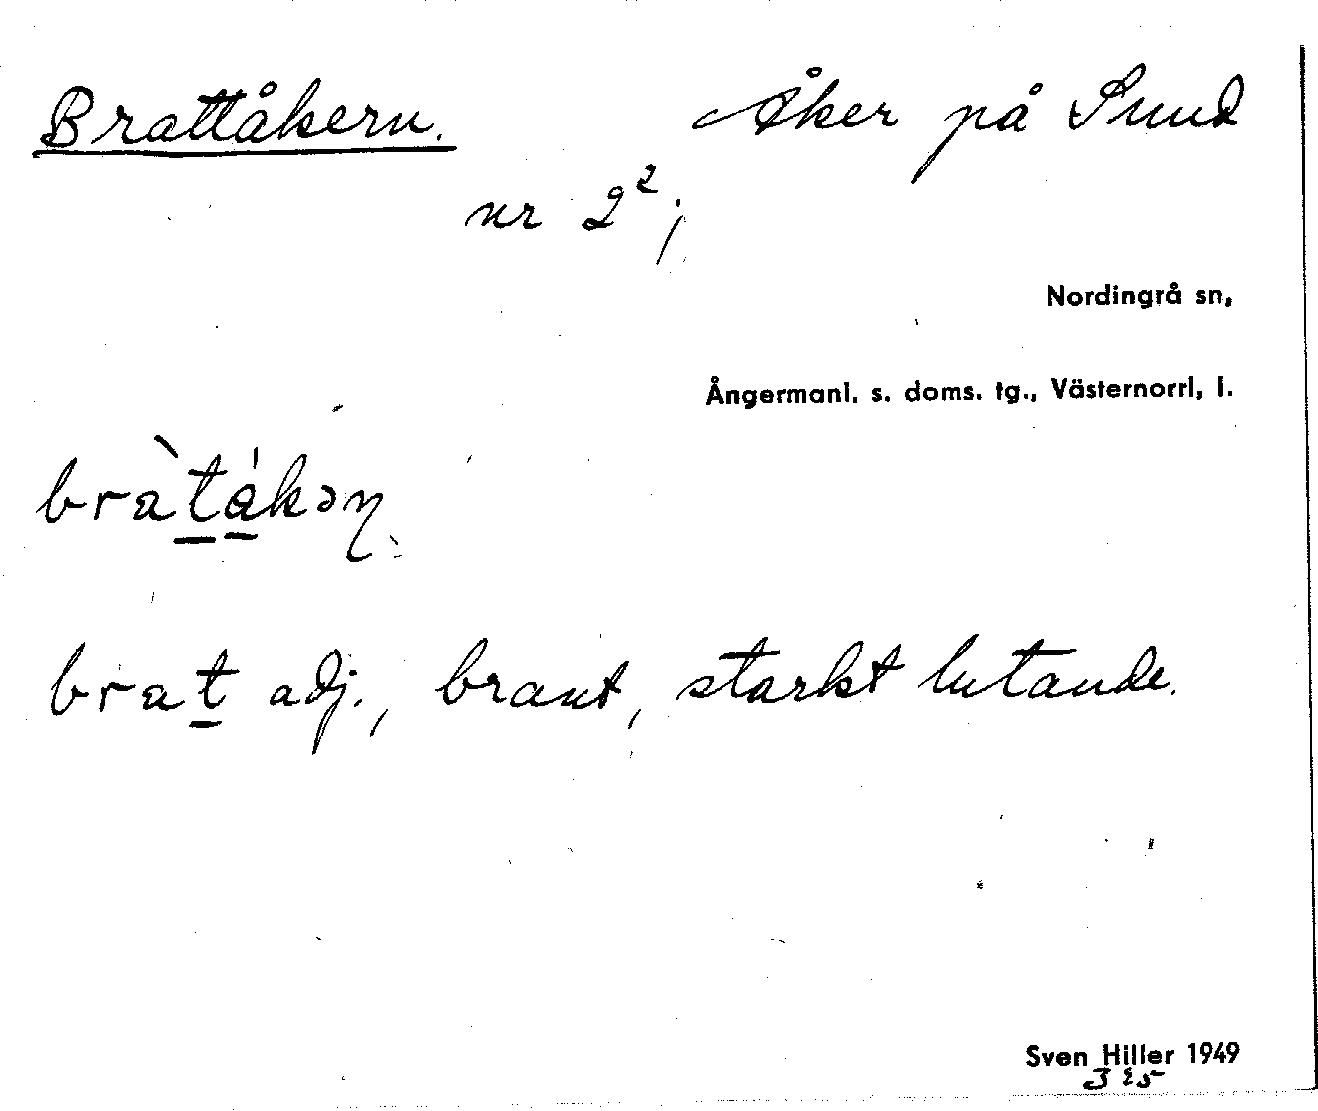 Brattåkern. Åker på Sund
nr 2²;
Nordingrå sn,
Ångermanl. s. doms. tg., Västernorrl, l.
bràtákəɳ
brat adj., brant, starkt lutande.
Sven Hiller 1949